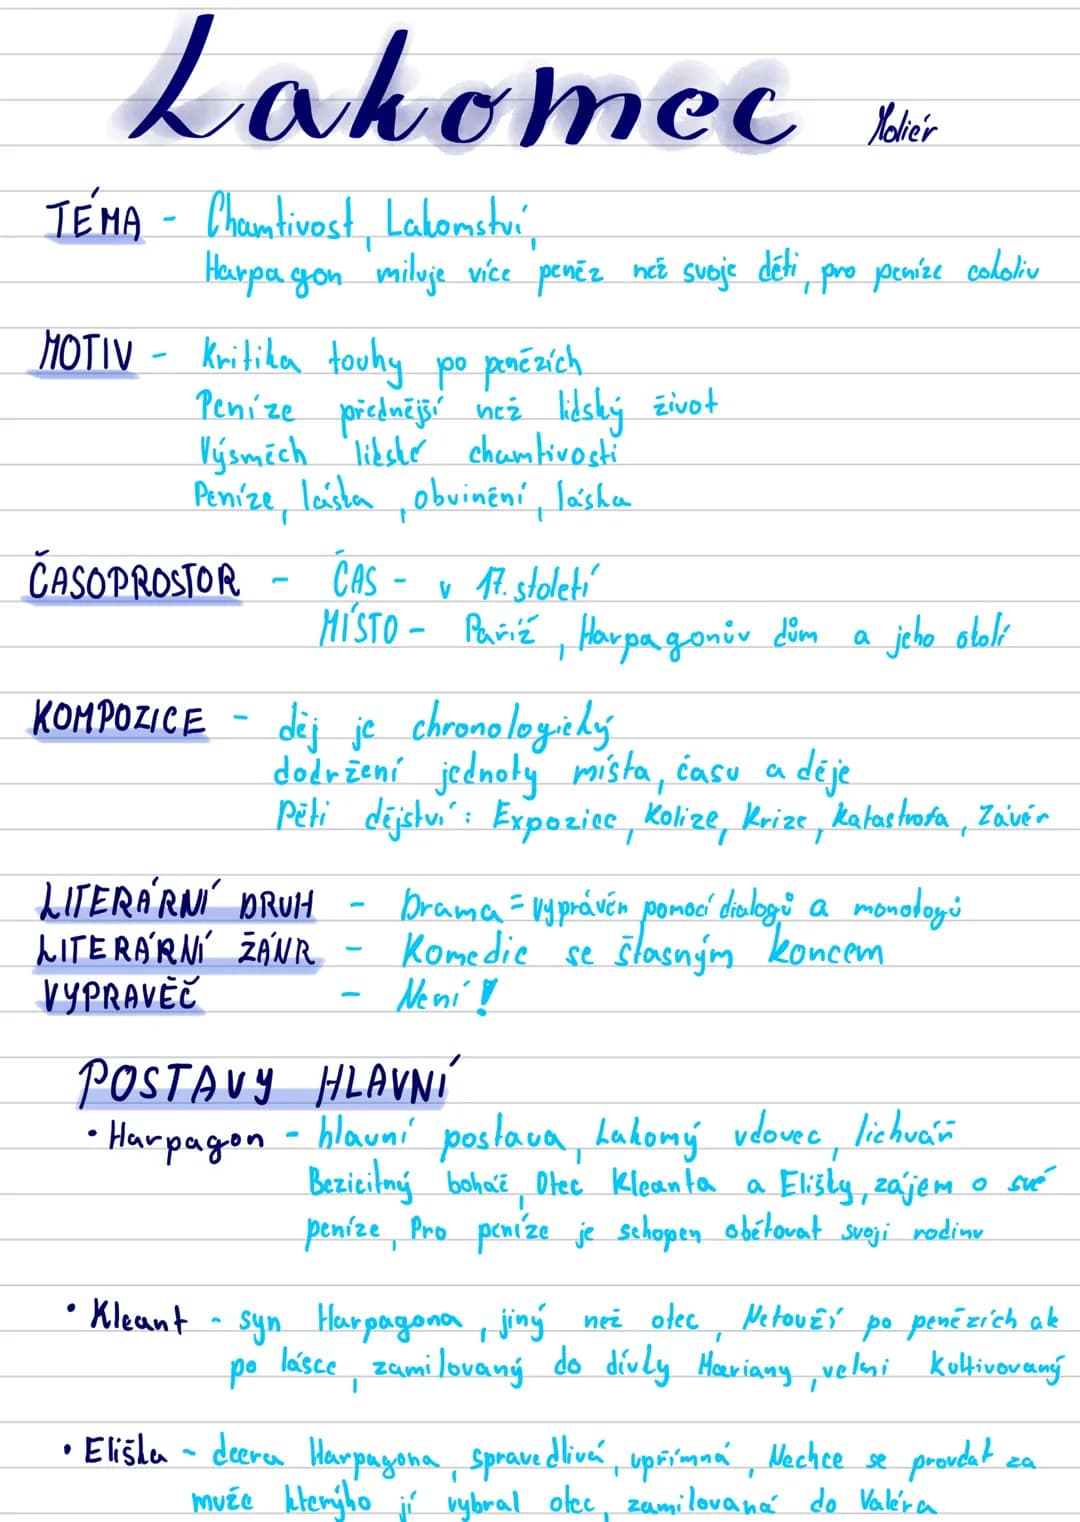 Lakomec Moliér
TÉMA - Chamtivost, Lakomství,
Harpagon miluje více peněz než svoje děti, pro peníze cokoliv
MOTIV - Kritika touhy po penězích
Peníze přednější než lidský život
Výsměch lidské chamtivosti
Peníze, láska, obvinění, láska
ČASOPROSTOR - ČAS - v 17. století
MÍSTO - Paříž, Harpagonův dům a jeho okolí
KOMPOZICE - děj je chronologický
dodržení jednoty místa, času a děje
Pěti dějství: Expozice, Kolize, Krize, Katastrofa, Závěr
LITERÁRNÍ DRUH - Drama = vyprávěn pomocí dialogů a monologů
LITERÁRNÍ ŽÁNR - Komedie se šťasným koncem
VYPRAVĚČ - Není!
POSTAVY HLAVNÍ
• Harpagon - hlavní postava, Lakomý vdovec, lichvář
Bezicitný boháč, Otec Kleanta a Elišky, zájem o své
peníze, Pro peníze je schopen obětovat svoji rodinu
• Kleant - syn Harpagona, jiný než otec, Netouží po penězích ak
po lásce, zamilovaný do dívky Mariany, velmi kultivovaný
• Eliška - dcera Harpagona, spravedlivá, upřímná, Nechce se provdat za
muže kterýho jí vybral otec, zamilovaná do Valéra